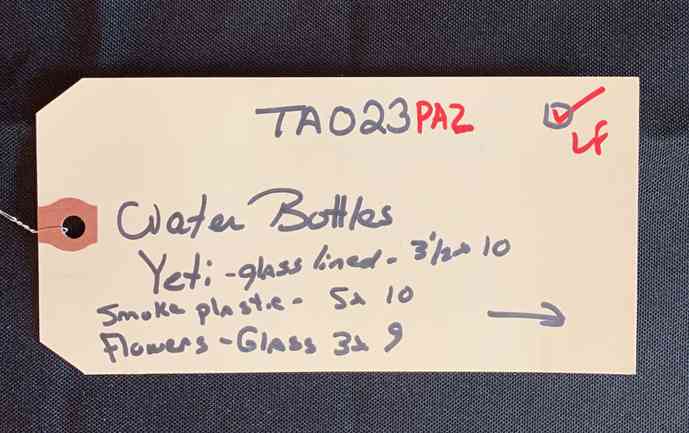 TA023PAZ
LF
Water Bottles
Yeti - glass lined - 3 1/2 x 10
Smoke plastic - 5x 10
Flowers - Glass 3x 9